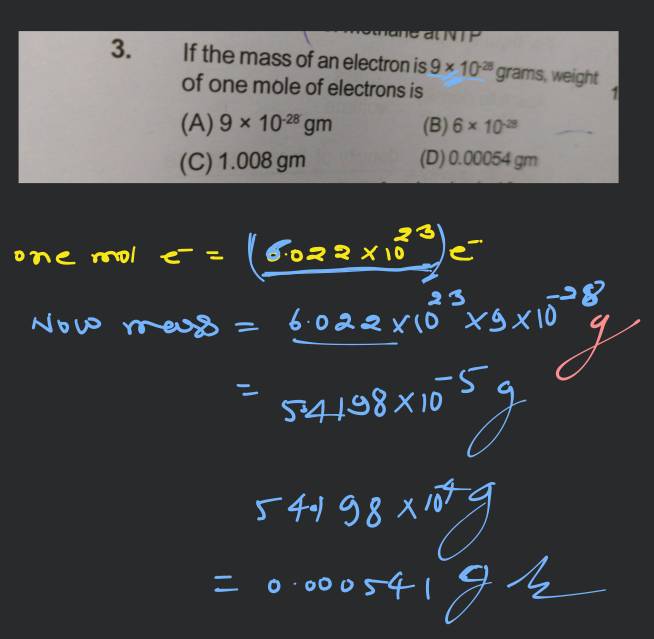 methane at NTP
3. If the mass of an electron is 9 × 10-28 grams, weight
of one mole of electrons is
(A) 9 × 10-28 gm (B) 6 × 10-28
(C) 1.008 gm (D) 0.00054 gm
one mol e- = (6.022 × 10^23) e-
Now mass = 6.022 × 10^23 × 9 × 10^-28 g
= 54198 × 10^-5 g
54.198 × 10^-4 g
= 0.000541 g